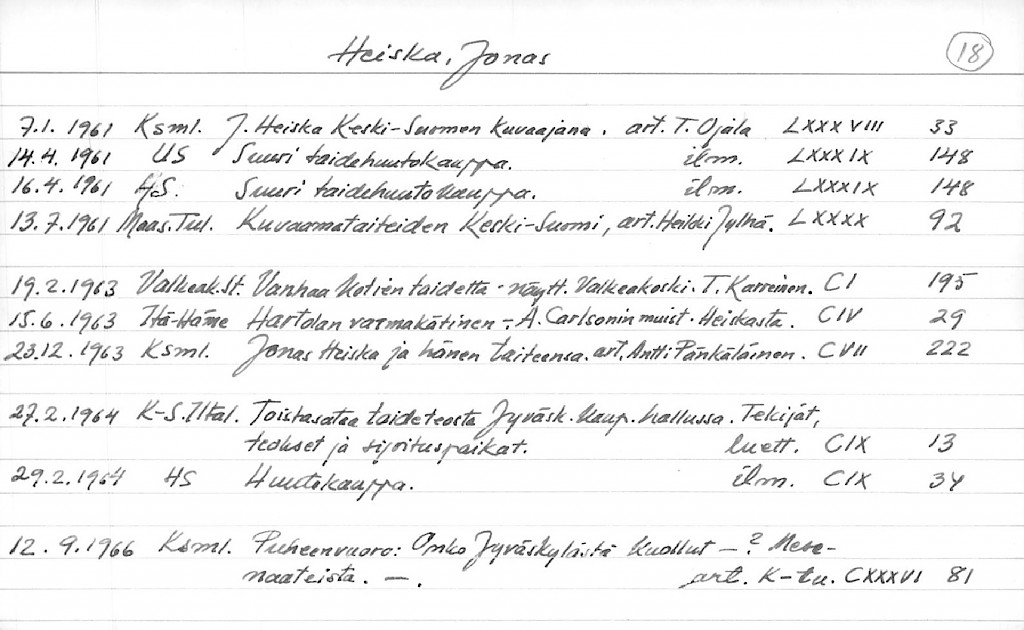 Heiska, Jonas 18
7.1.1961 Ksml. J. Heiska Keski-Suomen kuvaajana. art. T. Ojala LXXXVIII 33
14.4.1961 US Suuri taidehuutokauppa. ilm. LXXXIX 148
16.4.1961 HS. Suuri taidehuutokauppa. ilm. LXXXIX 148
13.7.1961 Maas.Tul. Kuvaamataiteiden Keski-Suomi, art. Heikki Jylhä. LXXXX 92
19.2.1963 Valkeak.St. Vanhaa kotien taidetta - näytt. Valkeakoski. T. Karreinen. CI 195
15.6.1963 Itä-Häme Hartolan varmakätinen -, A. Carlsonin muist. Heiskasta. CIV 29
23.12.1963 Ksml. Jonas Heiska ja hänen taiteensa. art. Antti Pänkäläinen. CVII 222
27.2.1964 K-S.Iltal. Toistasataa taideteosta Jyväsk. kaup. hallussa. Tekijät,
teokset ja sijoituspaikat. luett. CIX 13
29.2.1964 HS Huutokauppa. ilm. CIX 34
12.9.1966 Ksml. Puheenvuoro: Onko Jyväskylästä kuollut -? Mese-
naateista. -. art. K-tu. CXXXVI 81